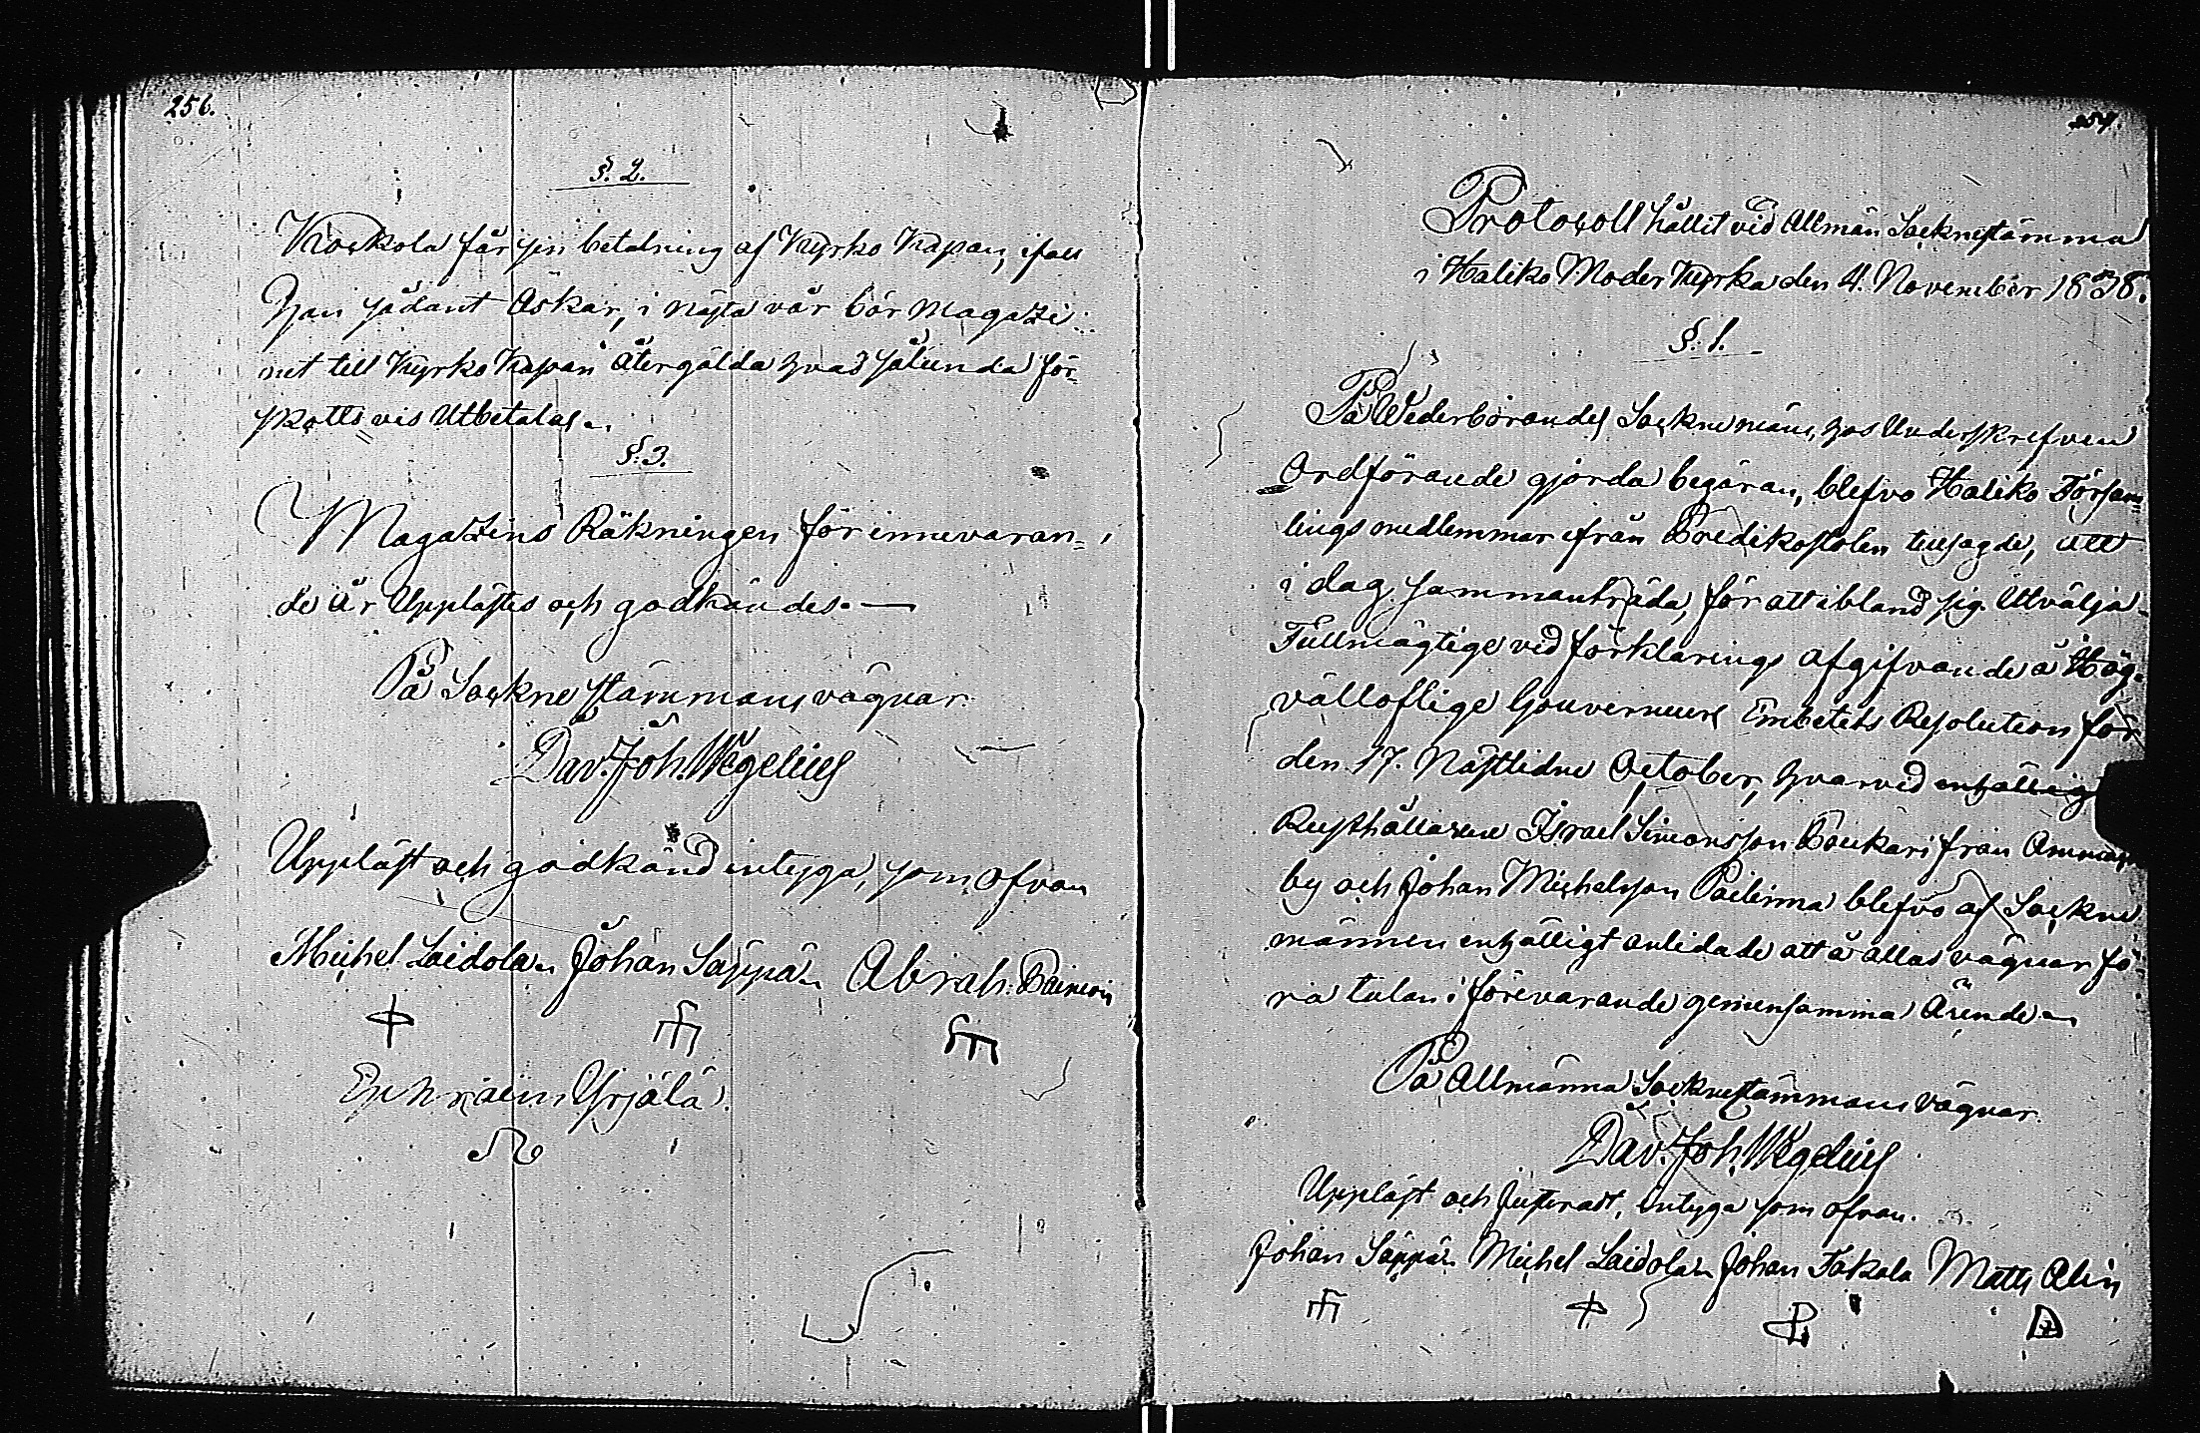 256.
§. 2.
Kockola får sin betalning af Kyrko Kassan, ifall
Han sådant Åskar, i nästa vår bör Magazi-
net till Kyrko Kassan återgälda hvad sålunda för-
skotts vis Utbetalas.
§. 3.
Magazins Räkningen för innevaran-
de år Upplästes och godkändes.—
På Sockne stämmans vägnar
Dav. Joh. Wegelius
Uppläst och godkänd intyga, som ofvan
Michel Laidola, Johan Säppä, Abrah.
Ephraim Yrjälä.
257.
Protocoll hållit vid Allmän Socknestämma
i Haliko Moder Kyrka den 4. November 1838.
§. 1.
På Wederbörandes Sockne mäns, hos Underskrefven
Ordförande gjorda begäran, blefvo Haliko Försam
lings medlemmar ifrån Predikostolen tillsagde, att
i dag sammanträda, för att ibland sig Utvälja
Fullmägtige vid förklarings afgifvande å Hög-
vällofliga Gouverneurs Embetets Resolution för
den 17. Nästledne October, hvarvid enhällig
Rusthållarene Israel Simonsson Paukari från Ammas
by och Johan Michelsson Pailinna blefvo af Sockne
männen enhälligt anlidade att å allas vägnar fö
ra talan i förevarande gemensamma Ärende.
På Allmänna Socknestämmans vägnar
Dav. Joh. Wegelius
Uppläst och Justeradt, intyga som ofvan.
Johan Säppä Michel Laidola Johan Takala Matts Alin